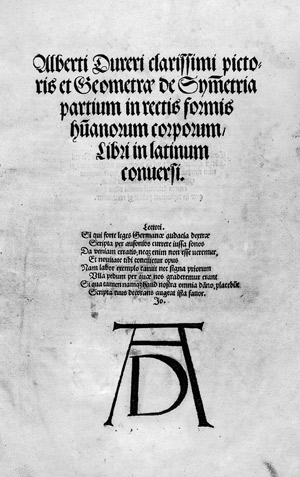 Alberti Dureri clarissimi picto-
ris et Geometræ de Sym̄etria
partium in rectis formis
hūanorum corporum/
Libri in latinum
conuersi.
Lectori.
Si qui forte leges Germanæ audacia dextræ
Scripta per ausonios currere iussa sonos
Da veniam erratis, neq; enim non esse veremur,
Et nouitate tibi opus
Nam labor exemplo caruit nec signa priorum
Vlla pedum per quæ nos graderemur erant
Si qua tamen namq; haud nostra omnia dāno, placebūt
Scripta tuus augeat ista fauor.
Io.
AD